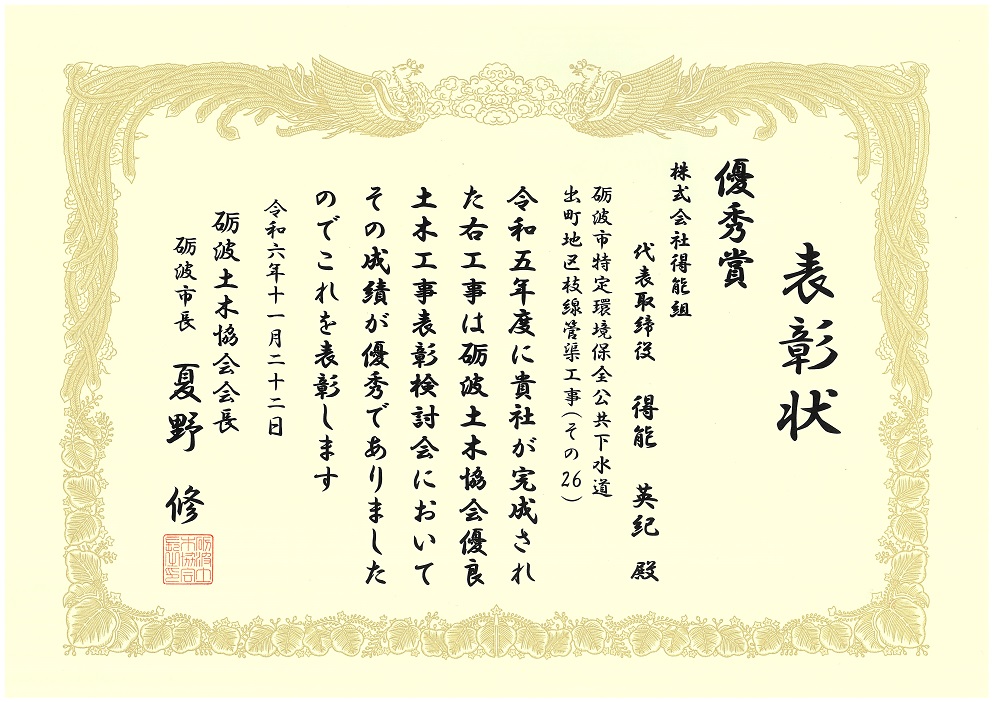 表彰状
優秀賞
株式会社得能組
代表取締役 得能 英紀 殿
砺波市特定環境保全公共下水道
出町地区枝線管渠工事(その26)
令和五年度に貴社が完成され
た右工事は砺波土木協会優良
土木工事表彰検討会において
その成績が優秀でありました
のでこれを表彰します
令和六年十一月二十二日
砺波土木協会会長
砺波市長 夏野 修